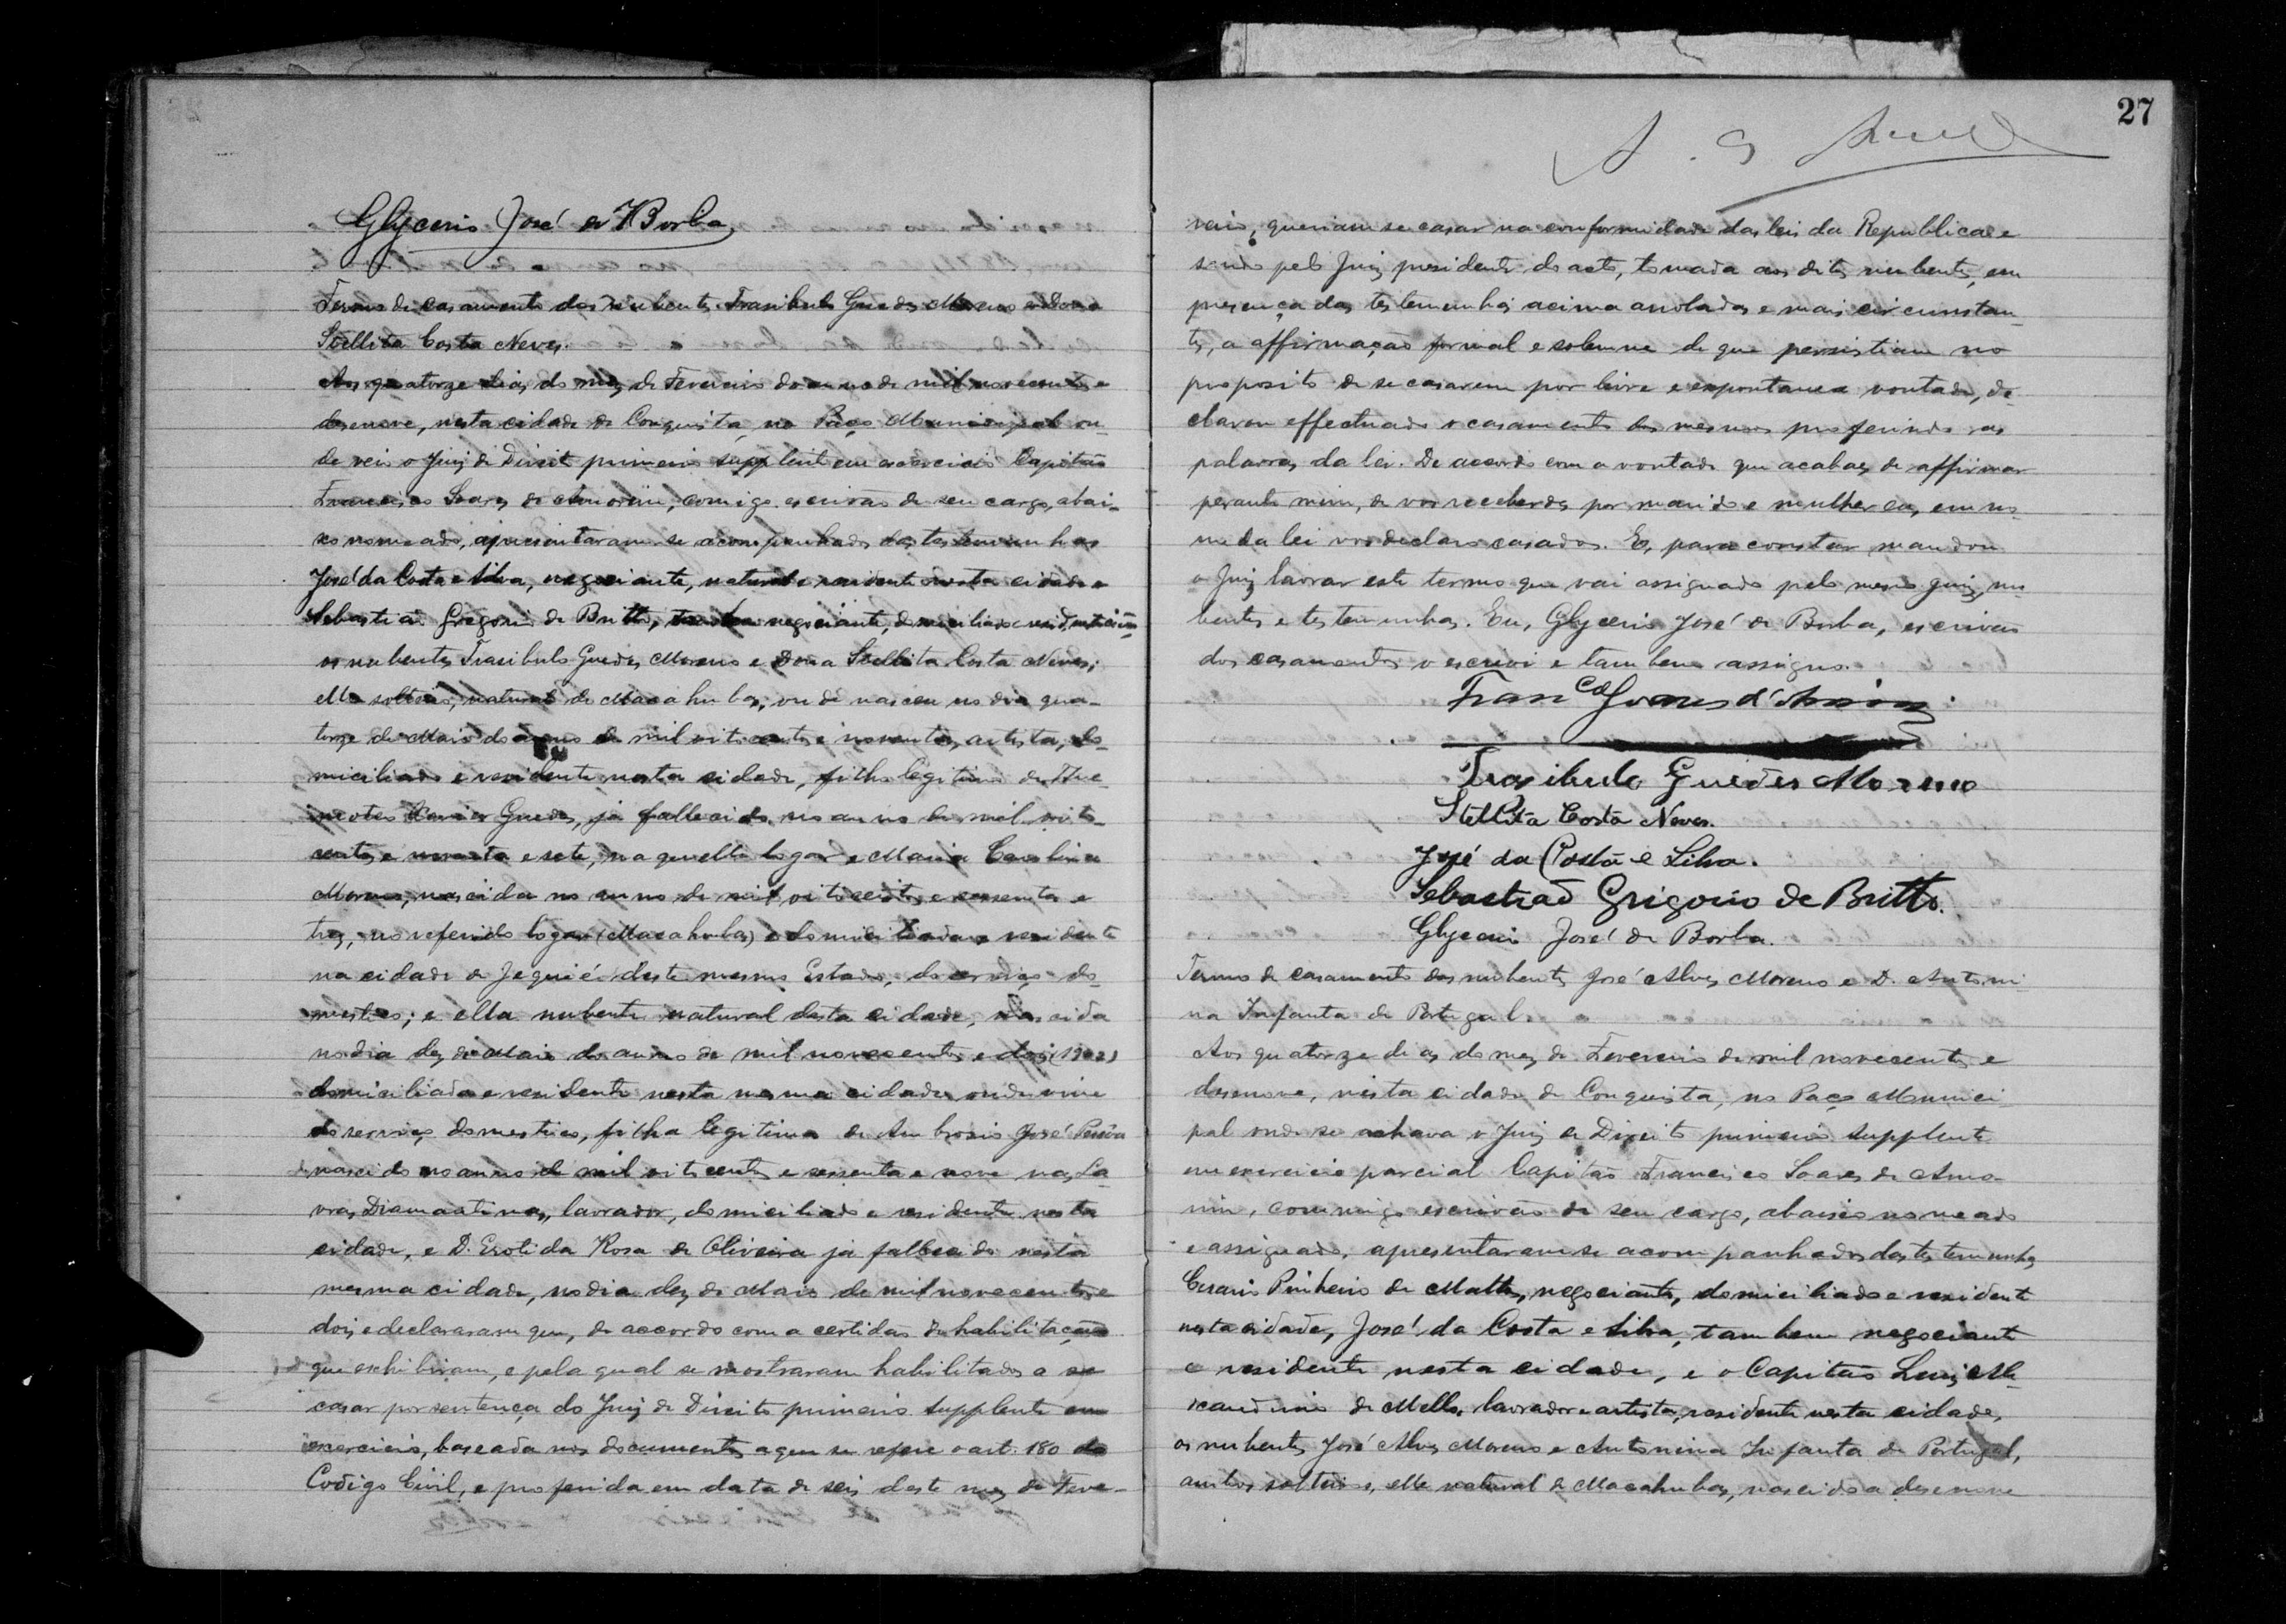 Glycerio José de Borba
Termo de casamento dos nubentes Trasibulo Guedes Moreno e Dona
Stellita Costa Neves.
Aos quatorze dias do mez de Fevereiro do anno de mil novecentos e
desenove, nesta cidade de Conquista, no Paço Municipal on-
de veio o Juiz de Direito primeiro supplente em exercicio Capitão
Francisco Soares de Amorim, comigo escrivão de seu cargo, abai-
xo nomeado, apresentaram-se acompanhados das testemunhas
José da Costa e Silva, negociante, natural e residente nesta cidade e
Sebastião Gregorio de Britto, negociante, domiciliado e residente
os nubentes Trasibulo Guedes Moreno e Dona Stellita Costa Neves;
elle solteiro, natural de Macahubas, onde nasceu no dia qua-
torze de Maio do anno de mil oitocentos e noventa, artista, do-
miciliado e residente nesta cidade, filho legitimo de
Guedes, já fallecido no anno de mil oito-
centos e noventa e sete, naquelle logar e Maria Carolina
Moreno, nascida no anno de mil oitocentos e sessenta e
tres, no referido logar (Macahubas) e domiciliada e residente
na cidade de Jequié deste mesmo Estado, do serviço do-
mestico; e ella nubente natural desta cidade, nascida
no dia dez de Maio do anno de mil novecentos e dois (1902)
domiciliada e residente nesta mesma cidade, onde vive
do serviço domestico, filha legitima de Ambrosio José
nascido no anno de mil oitocentos e sessenta e nove nas La-
vras Diamantinas, lavrador, domiciliado e residente nesta
cidade, e D. Erotida Rosa de Oliveira já fallecida nesta
mesma cidade, no dia dez de Maio de mil novecentos e
dois e declararam que, de accordo com a certidão de habilitação
que exhibiram, e pela qual se mostraram habilitados a se
casar por sentença do Juiz de Direito primeiro supplente em
exercicio, baseada nos documentos a que se refere o art. 180 do
Codigo Civil, e proferida em data de seis deste mez de Feve-
27
reiro, queriam se casar na conformidade das leis da Republica e
sendo pelo Juiz presidente do acto, tomada aos ditos nubentes, em
presença das testemunhas acima arroladas e mais circumstan-
tes, a affirmação formal e solemne de que persistiam no
proposito de se casarem por livre e expontanea vontade, de-
clarou effectuado o casamento dos mesmos proferindo as
palavras da lei. De accordo com a vontade que acabaes de affirmar
perante mim, de vos receberdes por marido e mulher eu, em no-
me da lei vos declaro casados. E, para constar mandou
o Juiz lavrar este termo que vai assignado pelo mesmo juiz, nu-
bentes e testemunhas. Eu, Glycerio José de Borba, escrivão
dos casamentos o escrevi e tambem assigno.
Franco Soares d'Amorim
Trasibulo Guedes Moreno
Stellita Costa Neves.
José da Costa e Silva.
Sebastiaõ Grigorio de Britto.
Glycerio José de Borba.
Termo de casamento dos nubentes José Alves Moreno e D. Antoni-
na Infanta de Portugal.
Aos quatorze dias do mez de Fevereiro de mil novecentos e
desenove, nesta cidade de Conquista, no Paço Munici-
pal onde se achava o Juiz de Direito primeiro supplente
em exercicio parcial Capitão Francisco Soares de Amo-
rim, commigo escrivão de seu cargo, abaixo nomeado
e assignado, apresentaram-se acompanhados das testemunhas
Cesario Pinheiro de Mattos, negociante, domiciliado e residente
nesta cidade, José da Costa e Silva, tambem negociante
e residente nesta cidade, e o Capitão Luiz Ale-
xandrino de Mello, lavrador e artista, residente nesta cidade,
os nubentes José Alves Moreno e Antonina Infanta de Portugal,
ambos solteiros, elle natural de Macahubas, nascido a desenove